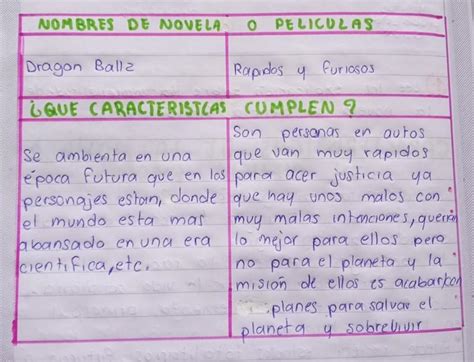 NOMBRES DE NOVELA O PELICULAS
Dragon Ballz
Rapidos y Furiosos
¿QUE CARACTERISTCAS CUMPLEN ?
Se ambienta en una
época futura que en los
personajes estan, donde
el mundo esta mas
abansado en una era
cientifica, etc.
Son personas en autos
que van muy rapidos
para acer justicia ya
que hay unos malos con
muy malas intenciones, querian
lo mejor para ellos pero
no para el planeta y la
misión de ellos es acabar con
planes para salvar el
planeta y sobrebivir